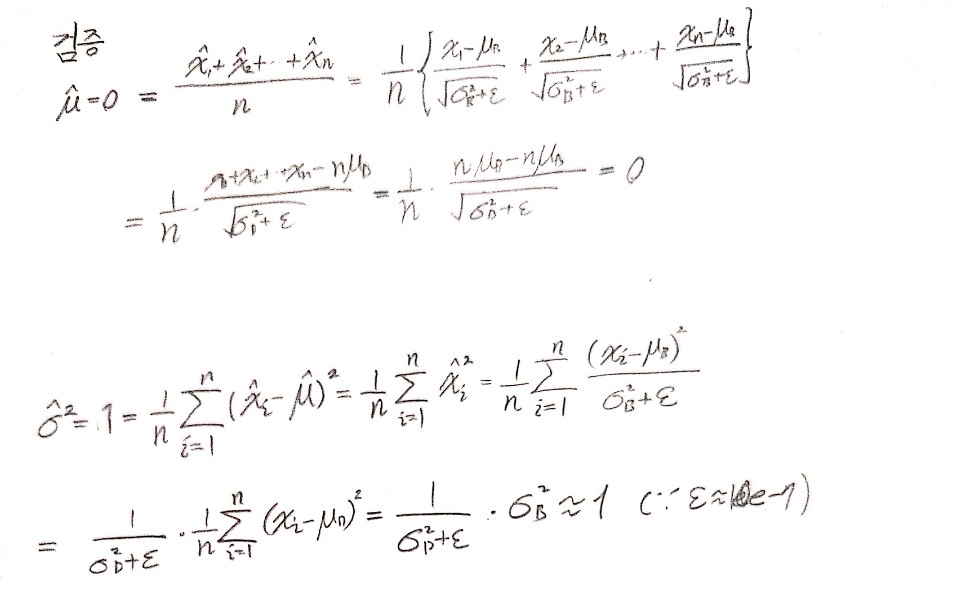 검증
μ̂=0 = (x̂₁+x̂₂+··+x̂ₙ)/n = 1/n {(x₁-μ_B)/√(σ_B²+ε) + (x₂-μ_B)/√(σ_B²+ε) +···+ (xₙ-μ_B)/√(σ_B²+ε)}
= 1/n · (x₁+x₂+··+xₙ-nμ_B)/√(σ_B²+ε) = 1/n · (nμ_B-nμ_B)/√(σ_B²+ε) = 0
σ̂²=1= 1/n ∑ᵢ₌₁ⁿ (x̂ᵢ-μ̂)² = 1/n ∑ᵢ₌₁ⁿ x̂ᵢ² = 1/n ∑ᵢ₌₁ⁿ (xᵢ-μ_B)²/(σ_B²+ε)
= 1/(σ_B²+ε) · 1/n ∑ᵢ₌₁ⁿ (xᵢ-μ_B)² = 1/(σ_B²+ε) · σ_B² ≈ 1 (∵ ε≈